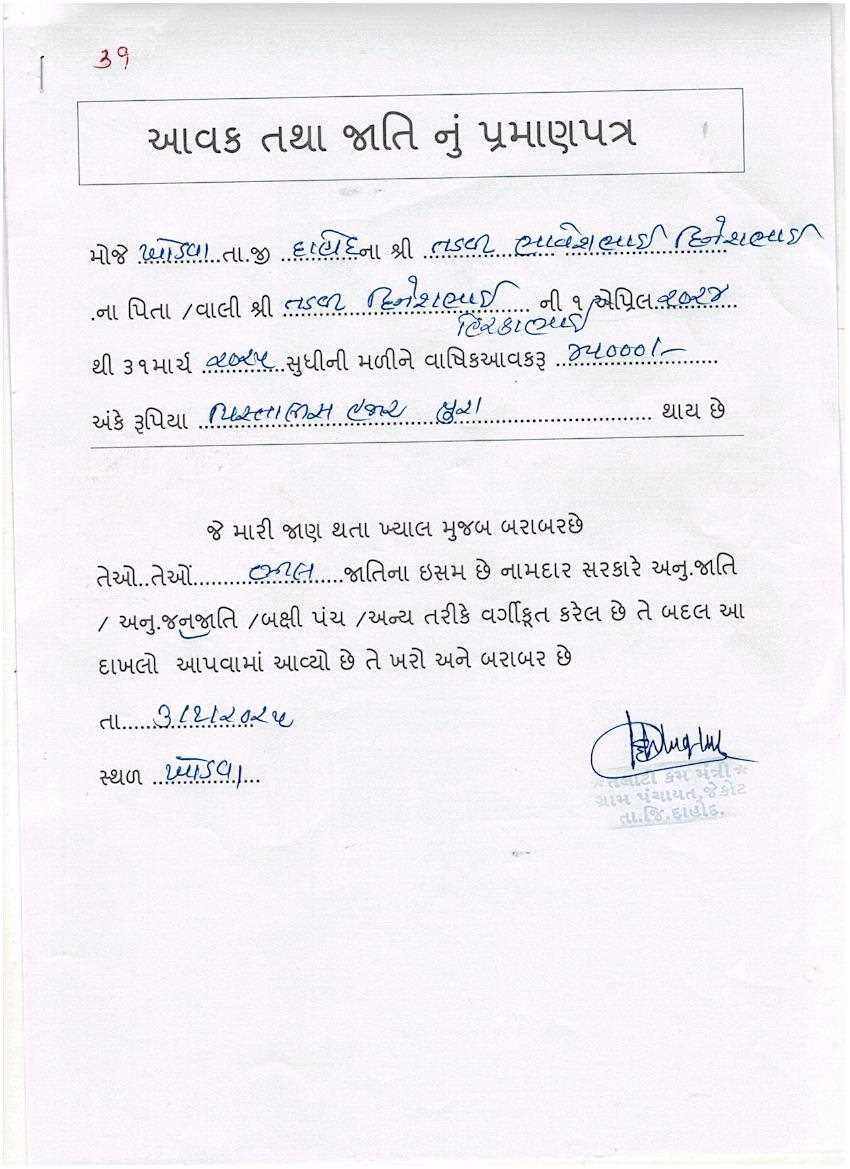 ૩૧
આવક તથા જાતિ નું પ્રમાણપત્ર
મોજે ખોડવા તા.જી દાહોદના શ્રી તડવી ભાવેશભાઈ દિનેશભાઈ
.ના પિતા /વાલી શ્રી તડવી દિનેશભાઈ ની ૧ એપ્રિલ ૨૦૨૪
થી ૩૧માર્ચ ૨૦૨૫ સુધીની મળીને વાષિકઆવકરૂ ૪૫૦૦૦/-
અંકે રૂપિયા પિસ્તાળીસ હજાર પુરા થાય છે
જે મારી જાણ થતા ખ્યાલ મુજબ બરાબરછે
તેઓ..તેઓં..........જાતિના ઇસમ છે નામદાર સરકારે અનુ.જાતિ
/ અનુ.જનજાતિ /બક્ષી પંચ /અન્ય તરીકે વર્ગીકૃત કરેલ છે તે બદલ આ
દાખલો આપવામાં આવ્યો છે તે ખરો અને બરાબર છે
તા.....
સ્થળ ખોડવા
તલાટી કમ મંત્રી
ગ્રામ પંચાયત,જેકોટ
તા.જિ.દાહોદ.